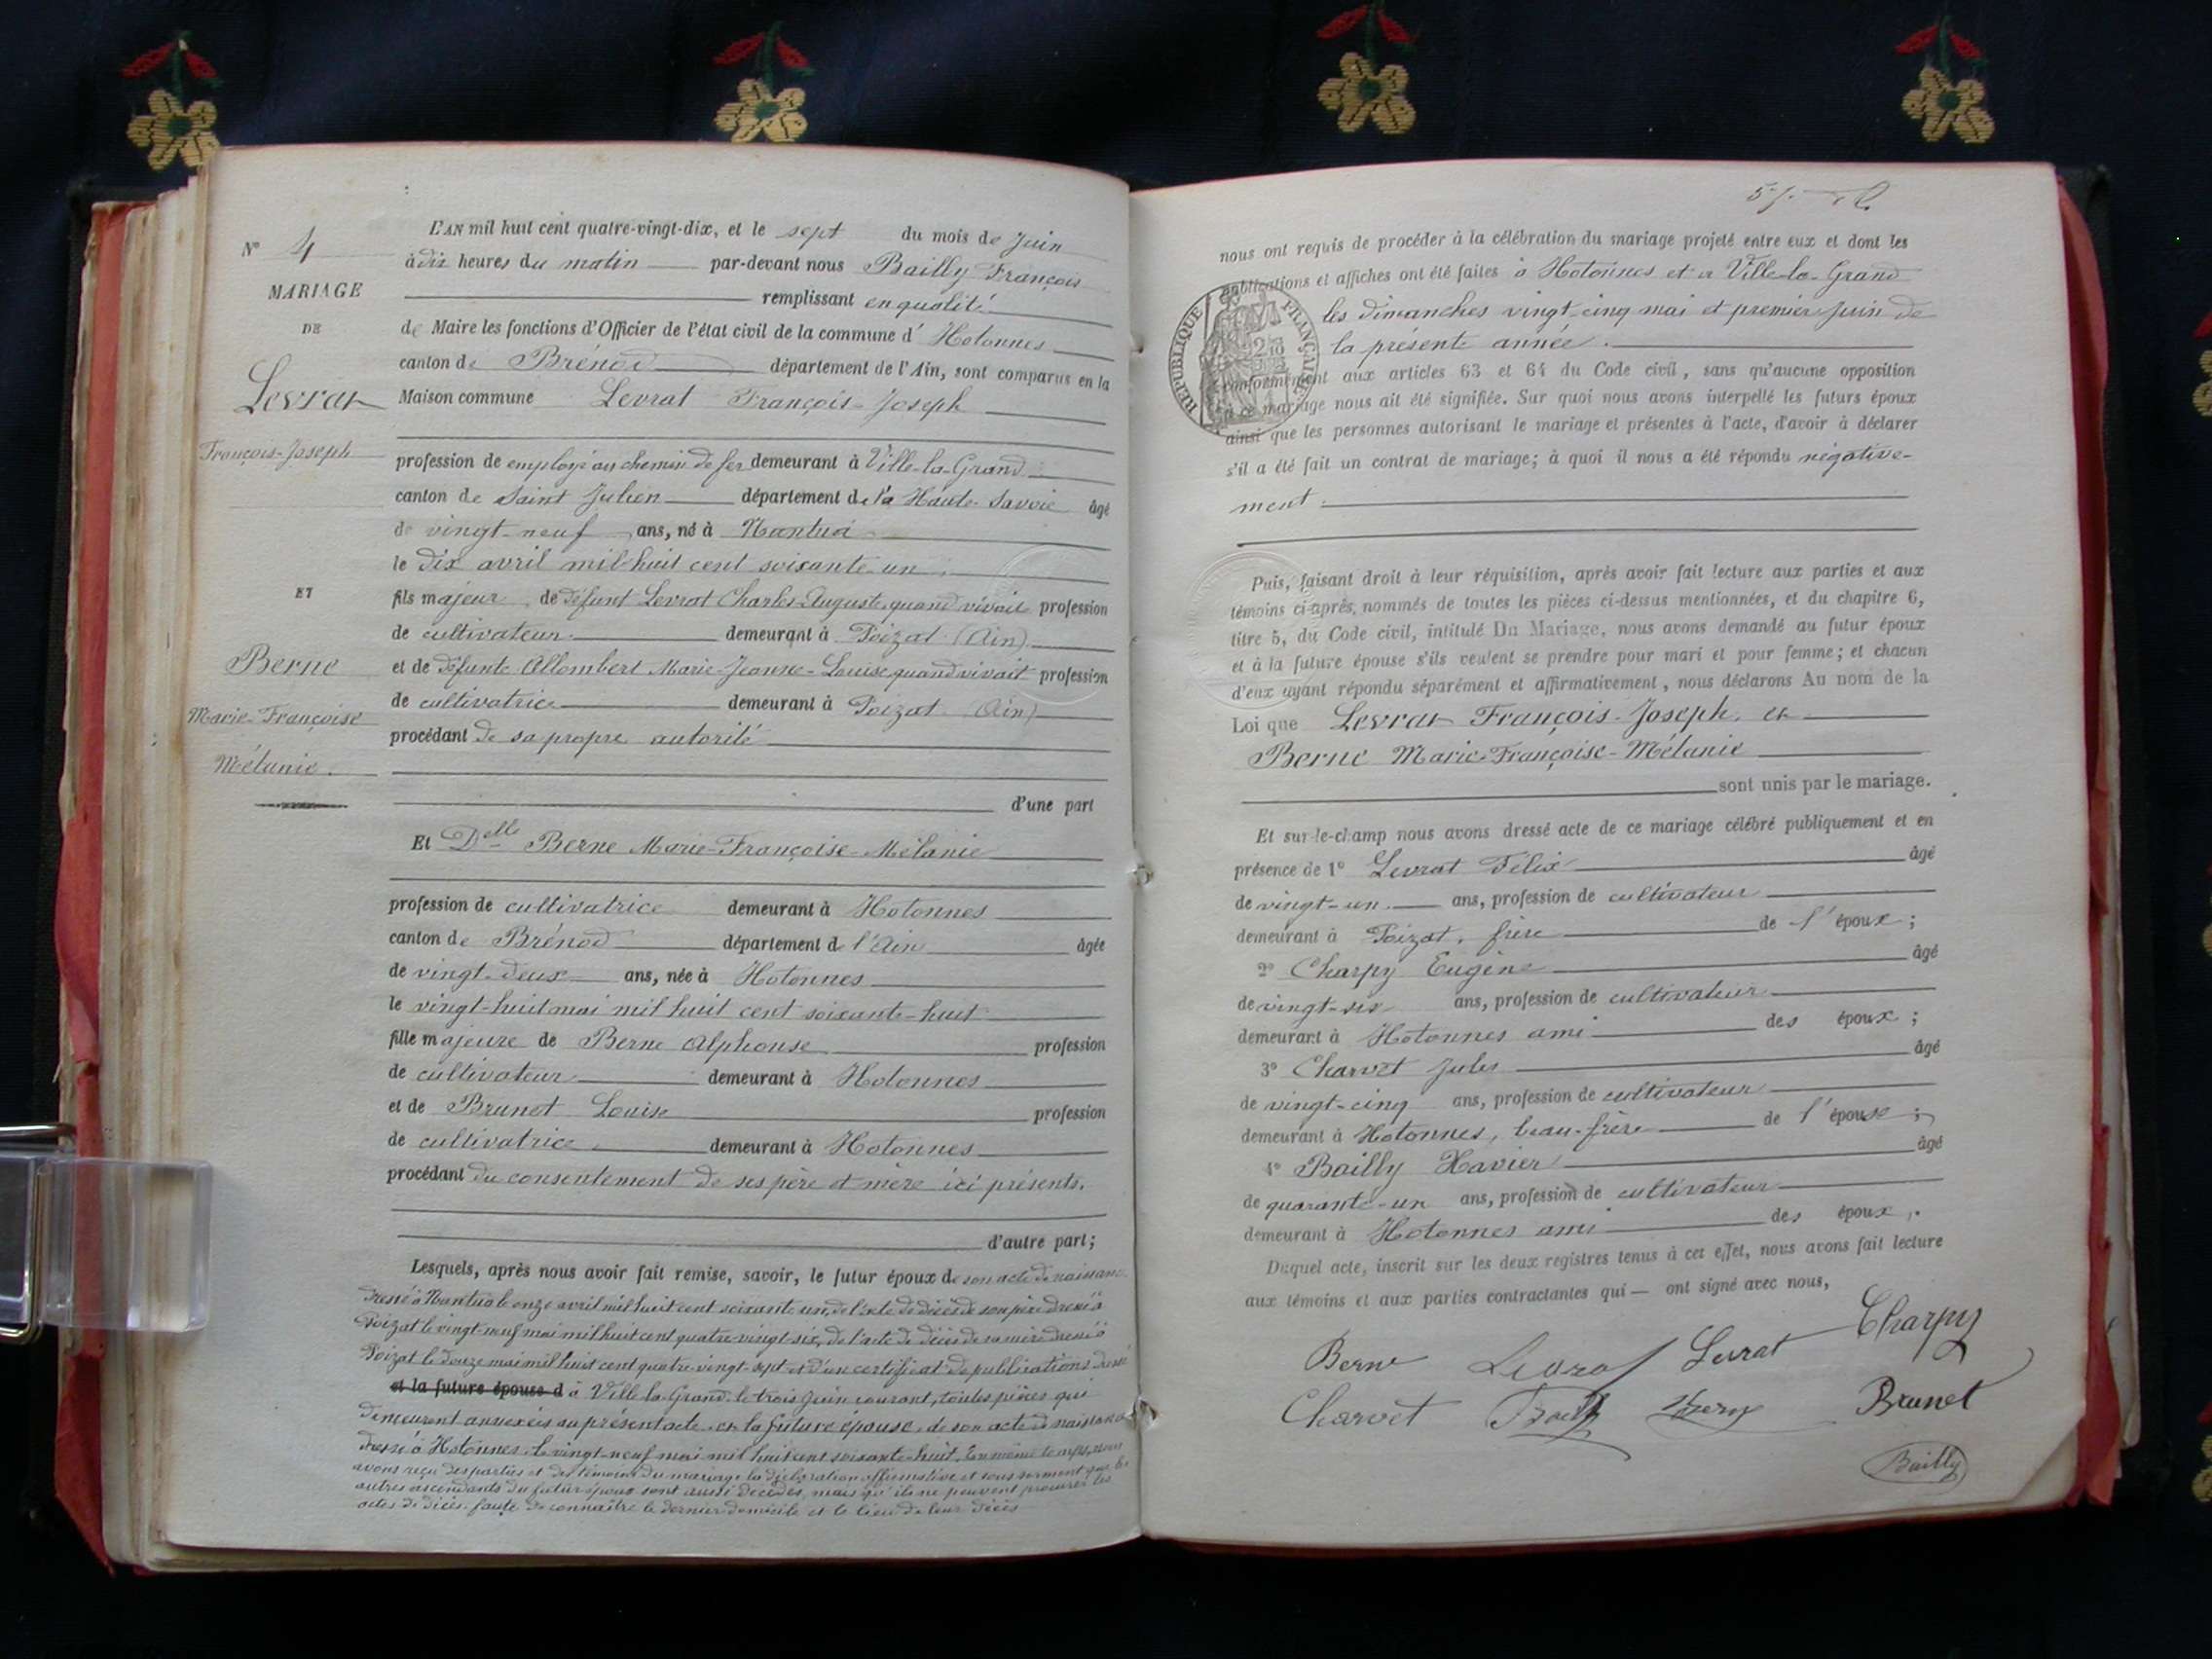 N° 4
MARIAGE
DE
Levrat
François-Joseph
ET
Berne
Marie-Françoise
Mélanie.
L'AN mil huit cent quatre-vingt-dix, et le sept du mois de Juin
à dix heures du matin par-devant nous Bailly François
remplissant en qualité
de Maire les fonctions d'Officier de l'état civil de la commune d' Hotonnes
canton de Brénod département de l'Ain, sont comparus en la
Maison commune Levrat François-Joseph
profession de employé au chemin de fer demeurant à Ville-la-Grand
canton de Saint Julien département de la Haute-Savoie âgé
de vingt-neuf ans, né à Nantua
le dix avril mil huit cent soixante-un,
fils majeur de défunt Levrat Charles-Auguste, quand vivait profession
de cultivateur demeurant à Poizat (Ain)
et de défunte Allombert Marie-Jeanne-Louise, quand vivait profession
de cultivatrice demeurant à Poizat (Ain)
procédant de sa propre autorité
d'une part
Et Delle Berne Marie-Françoise-Mélanie
profession de cultivatrice demeurant à Hotonnes
canton de Brénod département de l'Ain âgée
de vingt-deux ans, née à Hotonnes
le vingt-huit mai mil huit cent soixante-huit
fille majeure de Berne Alphonse profession
de cultivateur demeurant à Hotonnes
et de Brunet Louise profession
de cultivatrice demeurant à Hotonnes
procédant du consentement de ses père et mère ici présents.
d'autre part;
Lesquels, après nous avoir fait remise, savoir, le futur époux de son acte de naissance
dressé à Nantua le onze avril mil huit cent soixante un, de l'acte de décès de son père dressé à
Poizat le vingt-neuf mai mil huit cent quatre-vingt-six, de l'acte de décès de sa mère dressé à
Poizat le douze mai mil huit cent quatre-vingt-sept et d'un certificat de publications dressé
et la future épouse d à Ville-la-Grand le trois Juin courant, toutes pièces qui
demeurent annexées au présent acte. et la future épouse, de son acte de naissance
dressé à Hotonnes, le vingt-neuf mai mil huit cent soixante-huit. En même temps, nous
avons reçu des parties et des témoins du mariage la déclaration affirmative et sous serment que les
autres ascendants du futur époux sont aussi décédés, mais qu'ils ne peuvent procurer les
actes de décès faute de connaître le dernier domicile et le lieu de leur décès
57.
nous ont requis de procéder à la célébration du mariage projeté entre eux et dont les
publications et affiches ont été faites à Hotonnes et à Ville-la-Grand
les dimanches vingt-cinq mai et premier Juin de
la présente année.
RÉPUBLIQUE FRANÇAISE
conformément aux articles 63 et 64 du Code civil, sans qu'aucune opposition
à ce mariage nous ait été signifiée. Sur quoi nous avons interpellé les futurs époux
ainsi que les personnes autorisant le mariage et présentes à l'acte, d'avoir à déclarer
s'il a été fait un contrat de mariage; à quoi il nous a été répondu négative-
ment.
Puis, faisant droit à leur réquisition, après avoir fait lecture aux parties et aux
témoins ci-après, nommés de toutes les pièces ci-dessus mentionnées, et du chapitre 6,
titre 5, du Code civil, intitulé Du Mariage, nous avons demandé au futur époux
et à la future épouse s'ils veulent se prendre pour mari et pour femme; et chacun
d'eux ayant répondu séparément et affirmativement, nous déclarons Au nom de la
Loi que Levrat François-Joseph, et
Berne Marie-Françoise-Mélanie
sont unis par le mariage.
Et sur-le-champ nous avons dressé acte de ce mariage célébré publiquement et en
présence de 1° Levrat Félix âgé
de vingt-un ans, profession de cultivateur
demeurant à Poizat, frère de l'époux;
2° Charpy Eugène âgé
de vingt-six ans, profession de cultivateur
demeurant à Hotonnes ami des époux;
3° Charvet Jules âgé
de vingt-cinq ans, profession de cultivateur
demeurant à Hotonnes, beau-frère de l'épouse;
4° Bailly Xavier âgé
de quarante-un ans, profession de cultivateur
demeurant à Hotonnes ami des époux.
Duquel acte, inscrit sur les deux registres tenus à cet effet, nous avons fait lecture
aux témoins et aux parties contractantes qui — ont signé avec nous,
Berne Levrat Levrat Charpy
Charvet Bailly Berne Brunet
Bailly